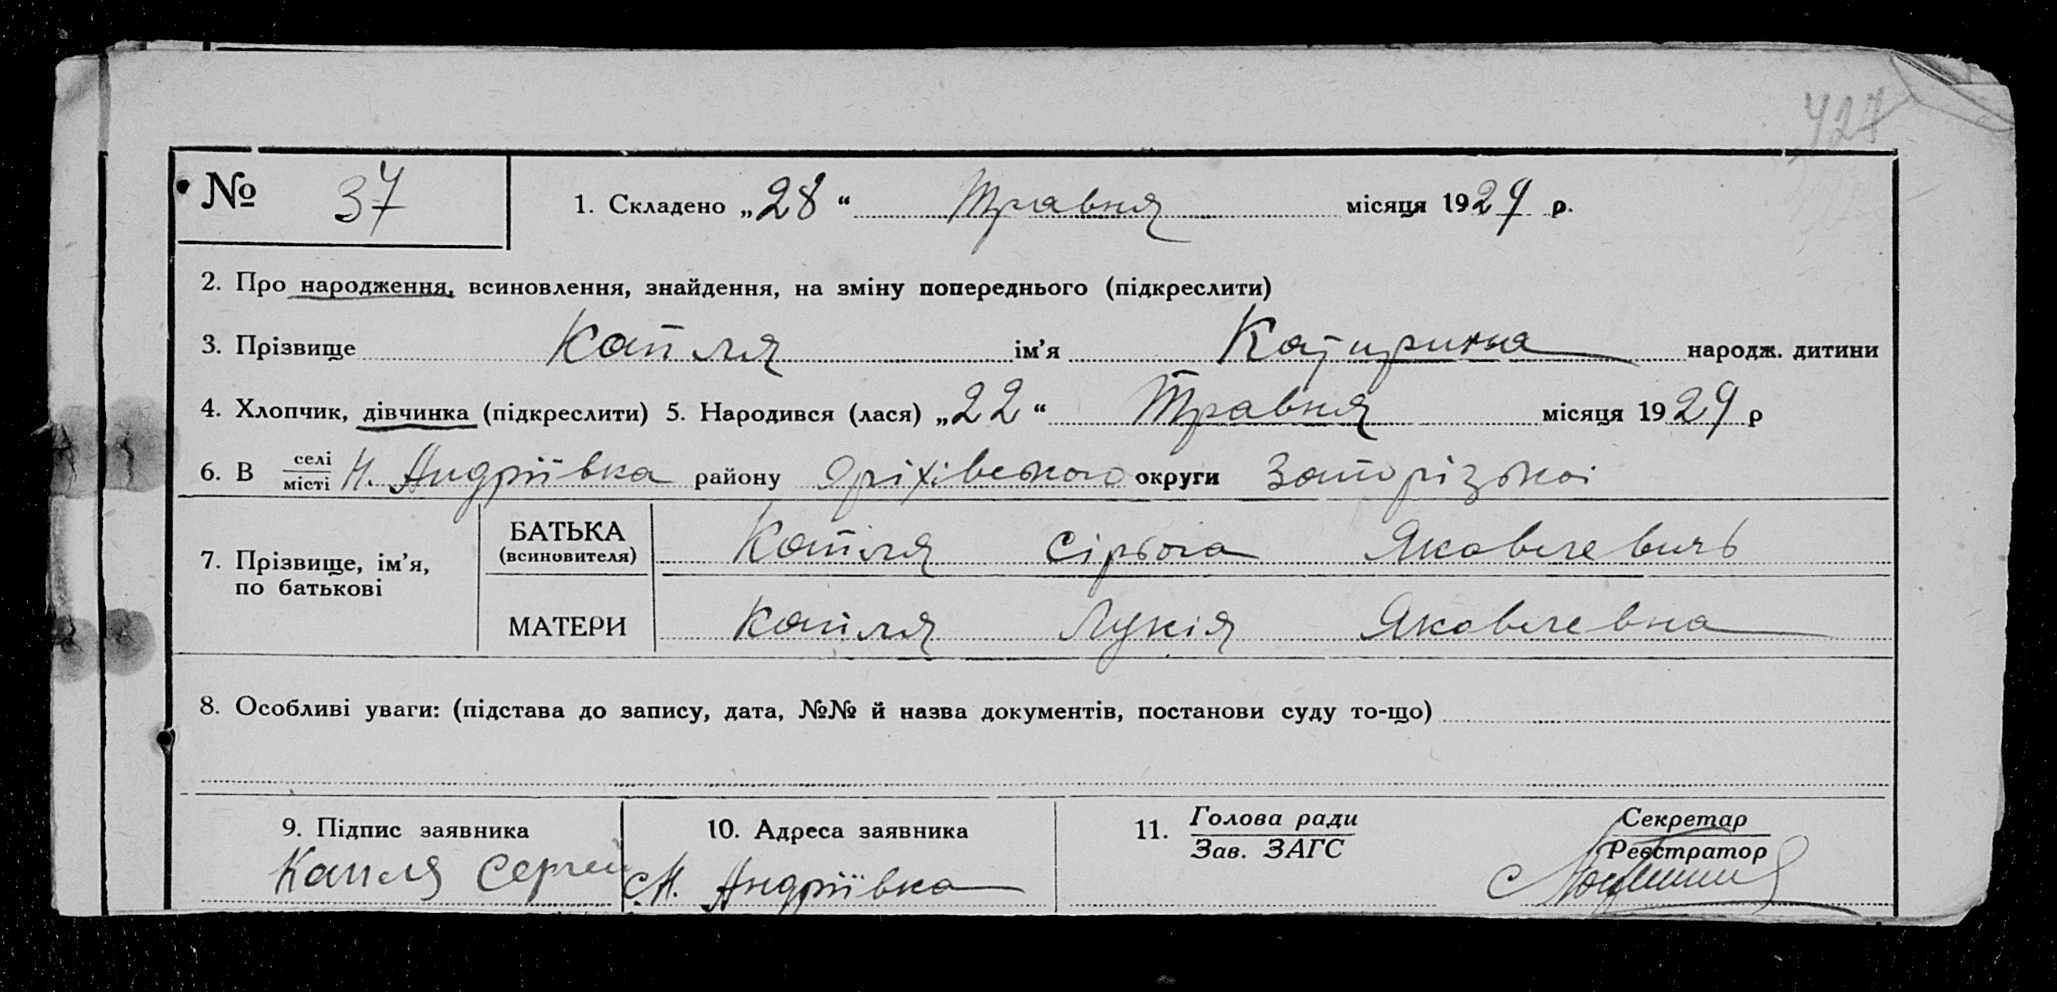 427
№ 37 1. Складено „28“ Травня місяця 1929 р.
2. Про народження, всиновлення, знайдення, на зміну попереднього (підкреслити)
3. Прізвище Капля ім’я Катирина народж. дитини
4. Хлопчик, дівчинка (підкреслити) 5. Народився (лася) „22“ Травня місяця 1929 р
6. В селі місті Н. Андріївка району Оріхівського округи Запорізькоі
7. Прізвище, ім’я, по батькові
БАТЬКА (всиновителя) Капля Сірьога Яковлевичь
МАТЕРИ Капля Лукія Яковлевна
8. Особливі уваги: (підстава до запису, дата, №№ й назва документів, постанови суду то-що)
9. Підпис заявника 10. Адреса заявника 11. Голова ради Секретар
Зав. ЗАГС Реєстратор
Капля Сергей с. Н. Андріївка